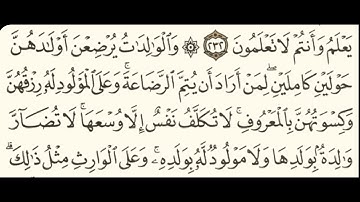 يَعْلَمُ وَأَنتُمْ لَا تَعْلَمُونَ ۝٢٣٢ ۞ وَٱلْوَٰلِدَٰتُ يُرْضِعْنَ أَوْلَٰدَهُنَّ
حَوْلَيْنِ كَامِلَيْنِ ۖ لِمَنْ أَرَادَ أَن يُتِمَّ ٱلرَّضَاعَةَ ۚ وَعَلَى ٱلْمَوْلُودِ لَهُۥ رِزْقُهُنَّ
وَكِسْوَتُهُنَّ بِٱلْمَعْرُوفِ ۚ لَا تُكَلَّفُ نَفْسٌ إِلَّا وُسْعَهَا ۚ لَا تُضَآرَّ
وَٰلِدَةٌۢ بِوَلَدِهَا وَلَا مَوْلُودٌ لَّهُۥ بِوَلَدِهِۦ ۚ وَعَلَى ٱلْوَارِثِ مِثْلُ ذَٰلِكَ ۗ